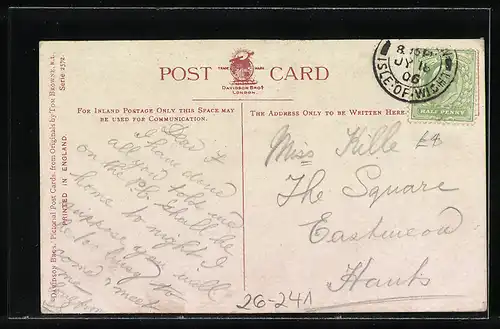 POST CARD
TRADE MARK
DAVIDSON BROS
LONDON.
FOR INLAND POSTAGE ONLY THIS SPACE MAY
BE USED FOR COMMUNICATION.
THE ADDRESS ONLY TO BE WRITTEN HERE
DAVIDSON BROS. Pictorial Post Cards, from Originals by TOM BROWNE, R.I.
Series 2572.
PRINTED IN ENGLAND.
I have done
all you told me
on the P.C. Shall be
home to night I
suppose you will
be to busy to
come & meet
me
Miss Kille
£4
The Square
Eastmeon
Hants
26-241
JY 18
06
ISLE-OF-WIGHT
HALF PENNY